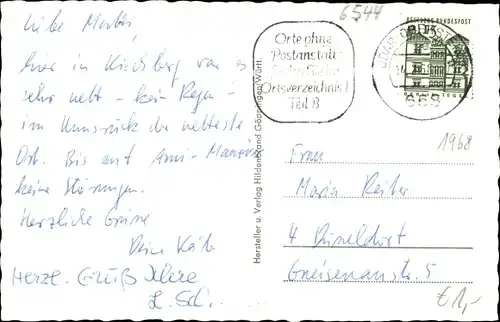 6544
Liebe Maria,
hier in Kirchberg war es
sehr nett - kein Regen -
im Hunsrück der netteste
Ort. Bis auf Ami-Manöver
keine Störungen.
Herzliche Grüsse
Deine Käte
Herzl. Gruß
Orte ohne
Postanstalt
Ortsverzeichnis I
Teil B
DEUTSCHE BUNDESPOST
658
Hersteller u. Verlag Hildenbrand Göppingen/Württ.
1968
Frau
Maria Reiter
4 Düsseldorf
Gneisenaustr. 5
€ 1,-